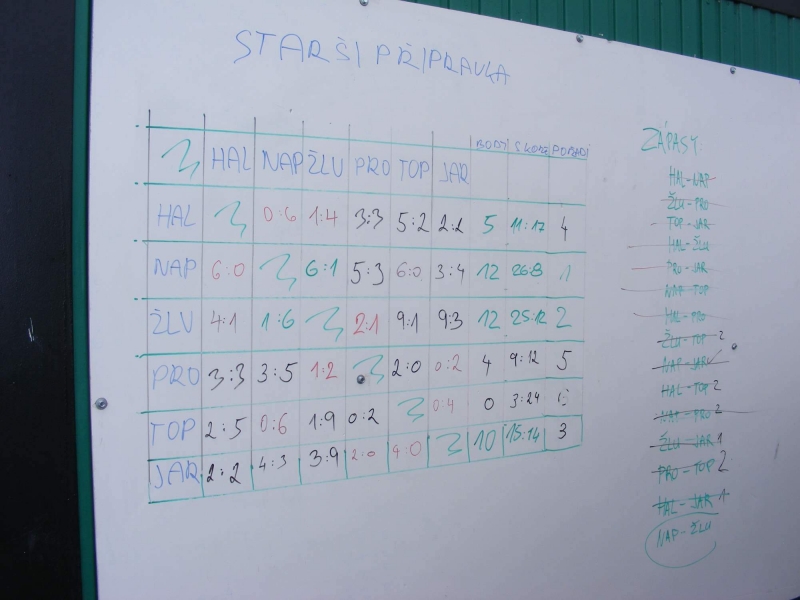 STARŠÍ PŘÍPRAVKA
HAL NAP ŽLU PRO TOP JAR BODY SKÓRE POŘADÍ
HAL 0:6 1:4 3:3 5:2 2:2 5 11:17 4
NAP 6:0 6:1 5:3 6:0 3:4 12 26:8 1
ŽLU 4:1 1:6 2:1 9:1 9:3 12 25:12 2
PRO 3:3 3:5 1:2 2:0 0:2 4 9:12 5
TOP 2:5 0:6 1:9 0:2 0:4 0 3:24
JAR 2:2 4:3 3:9 2:0 4:0 10 15:14 3
ZÁPASY:
HAL-NAP
ŽLU-PRO
TOP-JAR
HAL-ŽLU
PRO-JAR
NAP-TOP
HAL-PRO
ŽLU-TOP 2
NAP-JAR
HAL-TOP 2
NAP-PRO 2
ŽLU-JAR 1
PRO-TOP 2
HAL-JAR 1
NAP-ŽLU